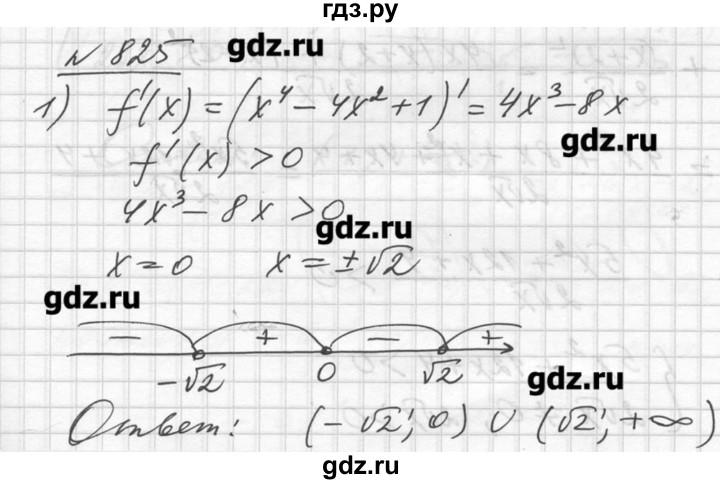 гдз.ру
№ 825 gdz.ru
1) f'(x) = (x⁴ − 4x² + 1)' = 4x³ − 8x
gdz.ru
f'(x) > 0
4x³ − 8x > 0
gdz.ru
x = 0 x = ±√2
gdz.ru
− + − +
−√2 0 √2
gdz.ru
Ответ: (−√2; 0) ∪ (√2; +∞)
gdz.ru